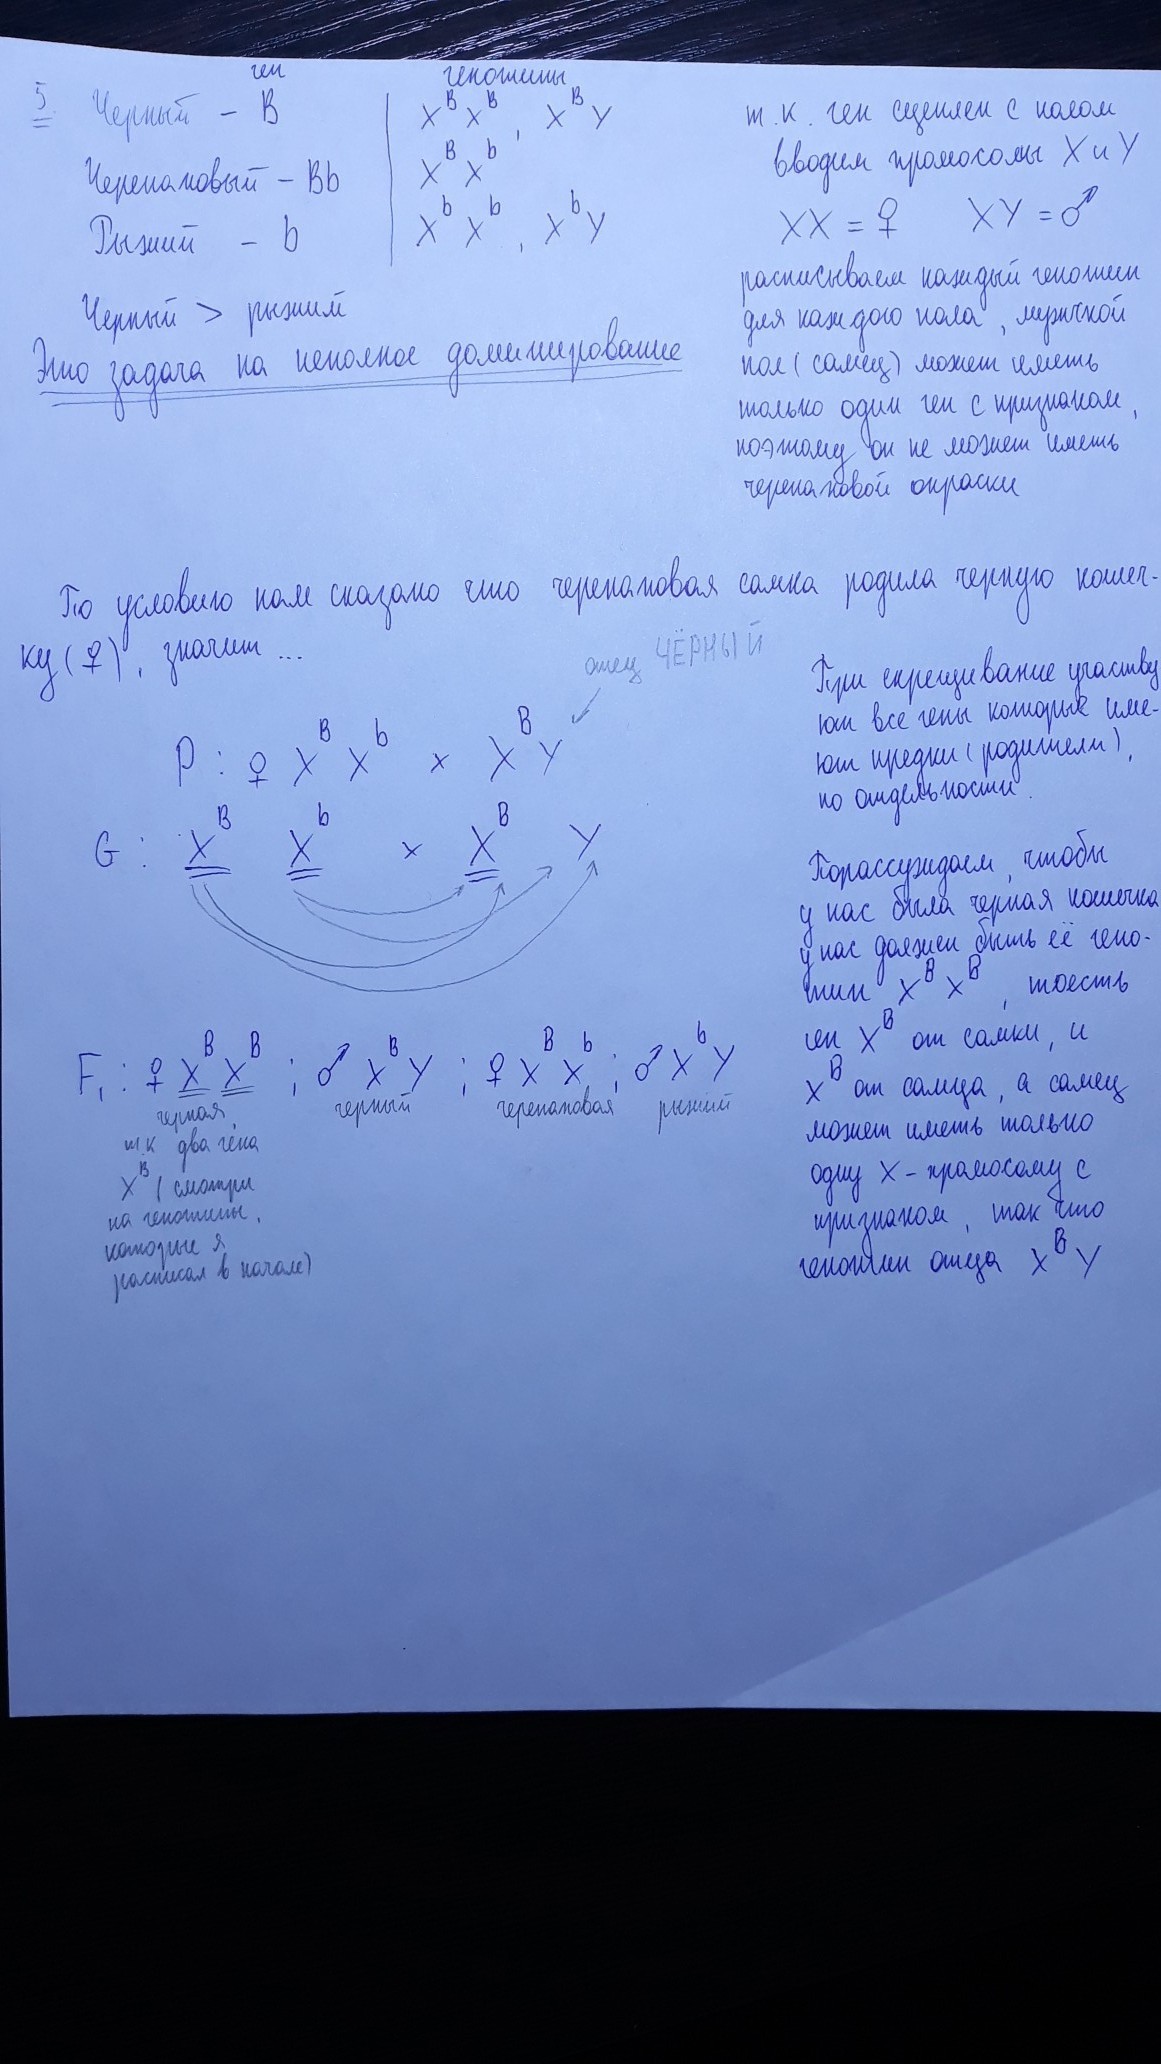 5
ген
генотипы
Черный – B
X^B X^B, X^B Y
Черепаховый – Bb
X^B X^b
Рыжий – b
X^b X^b, X^b Y
Черный > рыжим
Это задача на неполное доминирование
т.к. ген сцеплен с полом
вводим хромосомы X и Y
XX = ♀ XY = ♂
расписываем каждый генотип
для каждого пола, мужской
пол (самец) может иметь
только один ген с признаком,
поэтому он не может иметь
черепаховой окраски
По условию нам сказано что черепаховая самка родила черную кошеч-
ку (♀), значит ...
отец ЧЁРНЫЙ
P : ♀ X^B X^b × X^B Y
G : X^B X^b × X^B Y
F₁ : ♀ X^B X^B ; ♂ X^B Y ; ♀ X^B X^b ; ♂ X^b Y
черная, черный черепаховая рыжий
т.к два гена
X^B (смотри
на генотипы,
которые я
расписал в начале)
При скрещивание участву
ют все гены которые име-
ют предки (родители),
по отдельности.
Порассуждаем, чтобы
у нас была черная кошечка
у нас должен быть её гено-
тип X^B X^B, тоесть
ген X^B от самки, и
X^B от самца, а самец
может иметь только
одну X – хромосому с
признаком, так что
генотип отца X^B Y